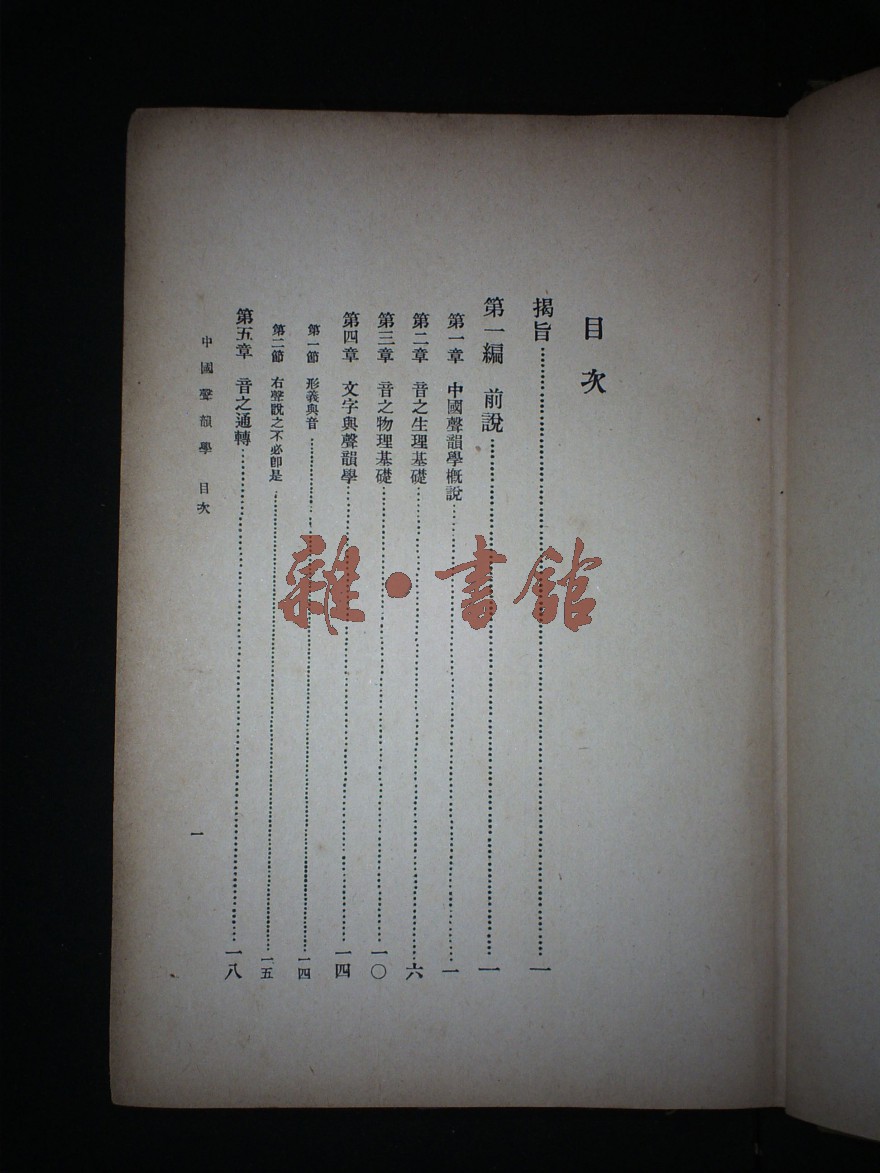 目次
揭旨……一
第一編 前說……一
第一章 中國聲韻學槪說……一
第二章 音之生理基礎……六
第三章 音之物理基礎……一〇
第四章 文字與聲韻學……一四
第一節 形義與音……一四
第二節 右聲說之不必卽是……一五
第五章 音之通轉……一八
中國聲韻學 目次
一
雜·書館